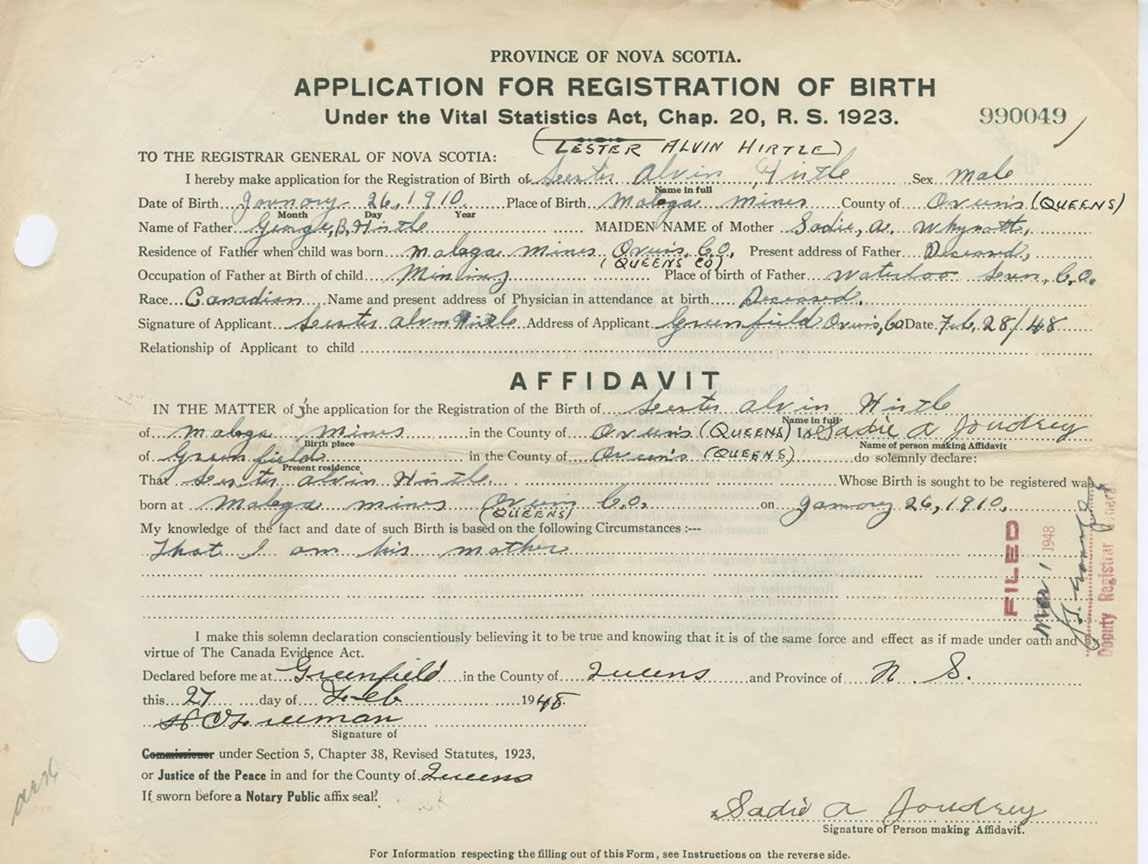 PROVINCE OF NOVA SCOTIA.
APPLICATION FOR REGISTRATION OF BIRTH
Under the Vital Statistics Act, Chap. 20, R. S. 1923.
990049
(LESTER ALVIN HIRTLE)
TO THE REGISTRAR GENERAL OF NOVA SCOTIA:
I hereby make application for the Registration of Birth of Lester Alvin Hirtle Sex Male
Name in full
Date of Birth January 26, 1910. Place of Birth Malaga Mines County of Queens (QUEENS)
Month Day Year
Name of Father George, B, Hirtle MAIDEN NAME of Mother Sadie, A. Whynott,
Residence of Father when child was born Malaga Mines Queens C.O. Present address of Father Deceased,
(QUEENS CO)
Occupation of Father at Birth of child Mining Place of birth of Father Waterloo Lun. C.O.
Race Canadian Name and present address of Physician in attendance at birth Deceased.
Signature of Applicant Lester Alvin Hirtle Address of Applicant Greenfield Queens, Co Date Feb, 28/48
Relationship of Applicant to child
AFFIDAVIT
IN THE MATTER of the application for the Registration of the Birth of Lester Alvin Hirtle
Name in full
of Malaga Mines in the County of Queens (QUEENS) I, Sadie A Joudrey
Birth place Name of person making Affidavit
of Greenfield in the County of Queens (QUEENS) do solemnly declare:
Present residence
That Lester Alvin Hirtle Whose Birth is sought to be registered was
born at Malaga Mines Queens C.O. on January 26, 1910.
(QUEENS)
My knowledge of the fact and date of such Birth is based on the following Circumstances :---
That I am his mother
FILED
Mar 1 1948
Deputy Registrar General
I make this solemn declaration conscientiously believing it to be true and knowing that it is of the same force and effect as if made under oath and by
virtue of The Canada Evidence Act.
Declared before me at Greenfield in the County of Queens and Province of N. S.
this 27 day of Feb 1948.
Freeman
Signature of
Commissioner under Section 5, Chapter 38, Revised Statutes, 1923,
or Justice of the Peace in and for the County of Queens
If sworn before a Notary Public affix seal.
Sadie A Joudrey
Signature of Person making Affidavit.
For Information respecting the filling out of this Form, see Instructions on the reverse side.